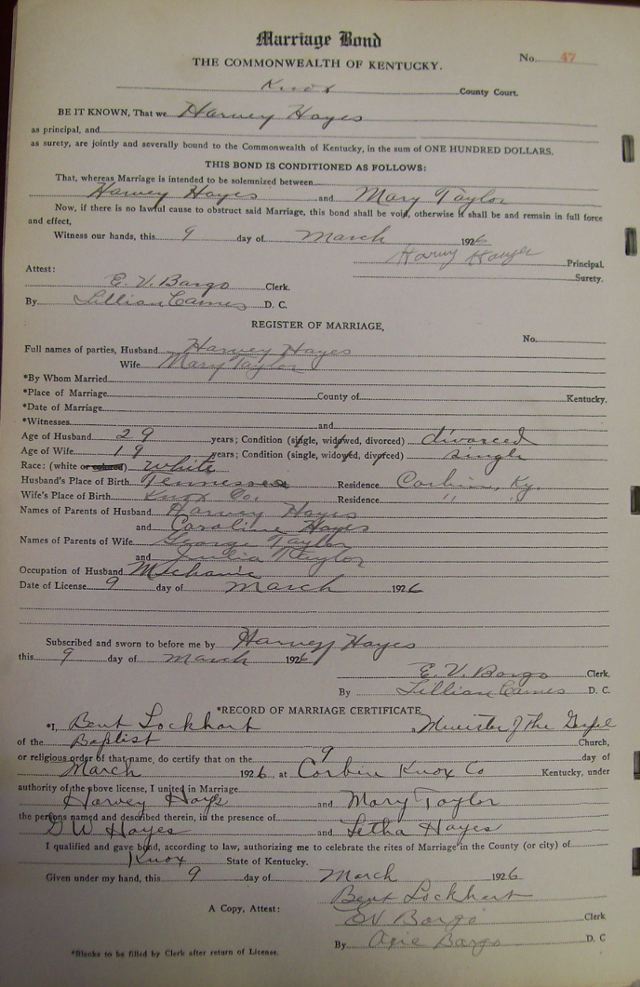 Marriage Bond
THE COMMONWEALTH OF KENTUCKY.
No. 47
Knox County Court.
BE IT KNOWN, That we Harvey Hayes
as principal, and
as surety, are jointly and severally bound to the Commonwealth of Kentucky, in the sum of ONE HUNDRED DOLLARS.
THIS BOND IS CONDITIONED AS FOLLOWS:
That, whereas Marriage is intended to be solemnized between
Harvey Hayes and Mary Taylor
Now, if there is no lawful cause to obstruct said Marriage, this bond shall be void, otherwise it shall be and remain in full force
and effect,
Witness our hands, this 9 day of March 1926
Harvy Principal.
Surety.
Attest:
E. V. Bargo Clerk.
By Lillian D. C.
REGISTER OF MARRIAGE,
No.
Full names of parties, Husband Harvey Hayes
Wife Mary Taylor
*By Whom Married
*Place of Marriage County of Kentucky.
*Date of Marriage
*Witnesses and
Age of Husband 29 years; Condition (single, widowed, divorced) divorced
Age of Wife 19 years; Condition (single, widowed, divorced) single
Race: (white or colored) white
Husband's Place of Birth Tennessee Residence Corbin, Ky
Wife's Place of Birth Knox Co. Residence " "
Names of Parents of Husband Harvey Hayes
and Caroline Hayes
Names of Parents of Wife George Taylor
and Julia Taylor
Occupation of Husband Mechanic
Date of License 9 day of March 1926
Subscribed and sworn to before me by Harvey Hayes
this 9 day of March 1926
E. V. Bargo Clerk.
By Lillian D. C.
*RECORD OF MARRIAGE CERTIFICATE
*I, Bent Lockhart, Minister of the Gospel
of the Baptist Church,
or religious order of that name, do certify that on the 9 day of
March 1926, at Corbin Knox Co Kentucky, under
authority of the above license, I united in Marriage
Harvey Hays and Mary Taylor
the persons named and described therein, in the presence of
G W Hayes and Letha Hayes
I qualified and gave bond, according to law, authorizing me to celebrate the rites of Marriage in the County (or city) of
Knox State of Kentucky.
Given under my hand, this 9 day of March 1926
Bent Lockhart
A Copy, Attest: EV Bargo Clerk
By Bargo D. C
*Blanks to be filled by Clerk after return of License.